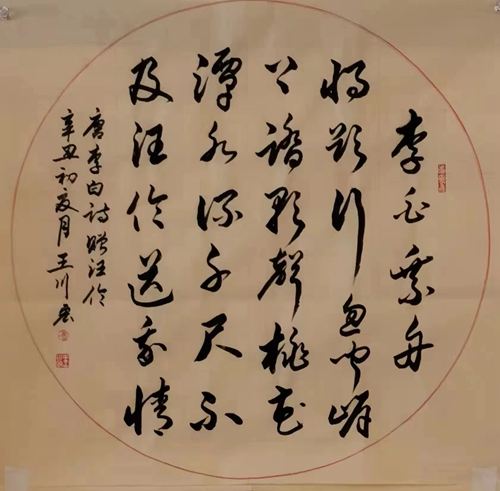 李白乘舟
將欲行忽聞岸
上踏歌聲桃花
潭水深千尺不
及汪倫送我情
唐李白詩贈汪倫
辛丑初夏月王川